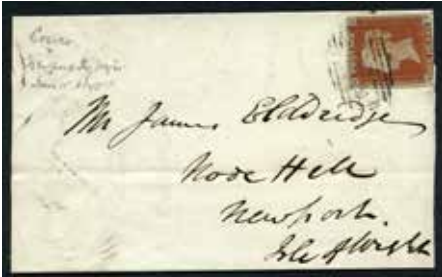 Cover
Mr James Eldridge
Node Hill
Newport
Isle of Wight